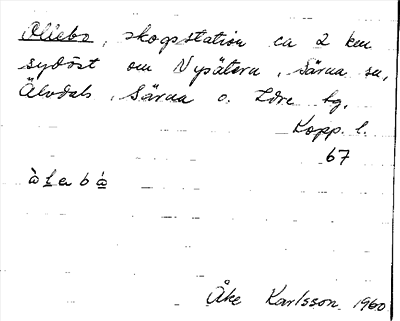 Oliebo, skogsstation ca 2 km
sydöst om Nysätern, Särna sn,
Älvdals, Särna o. Idre tg.
Kopp. l.
67
Åke Karlsson 1960